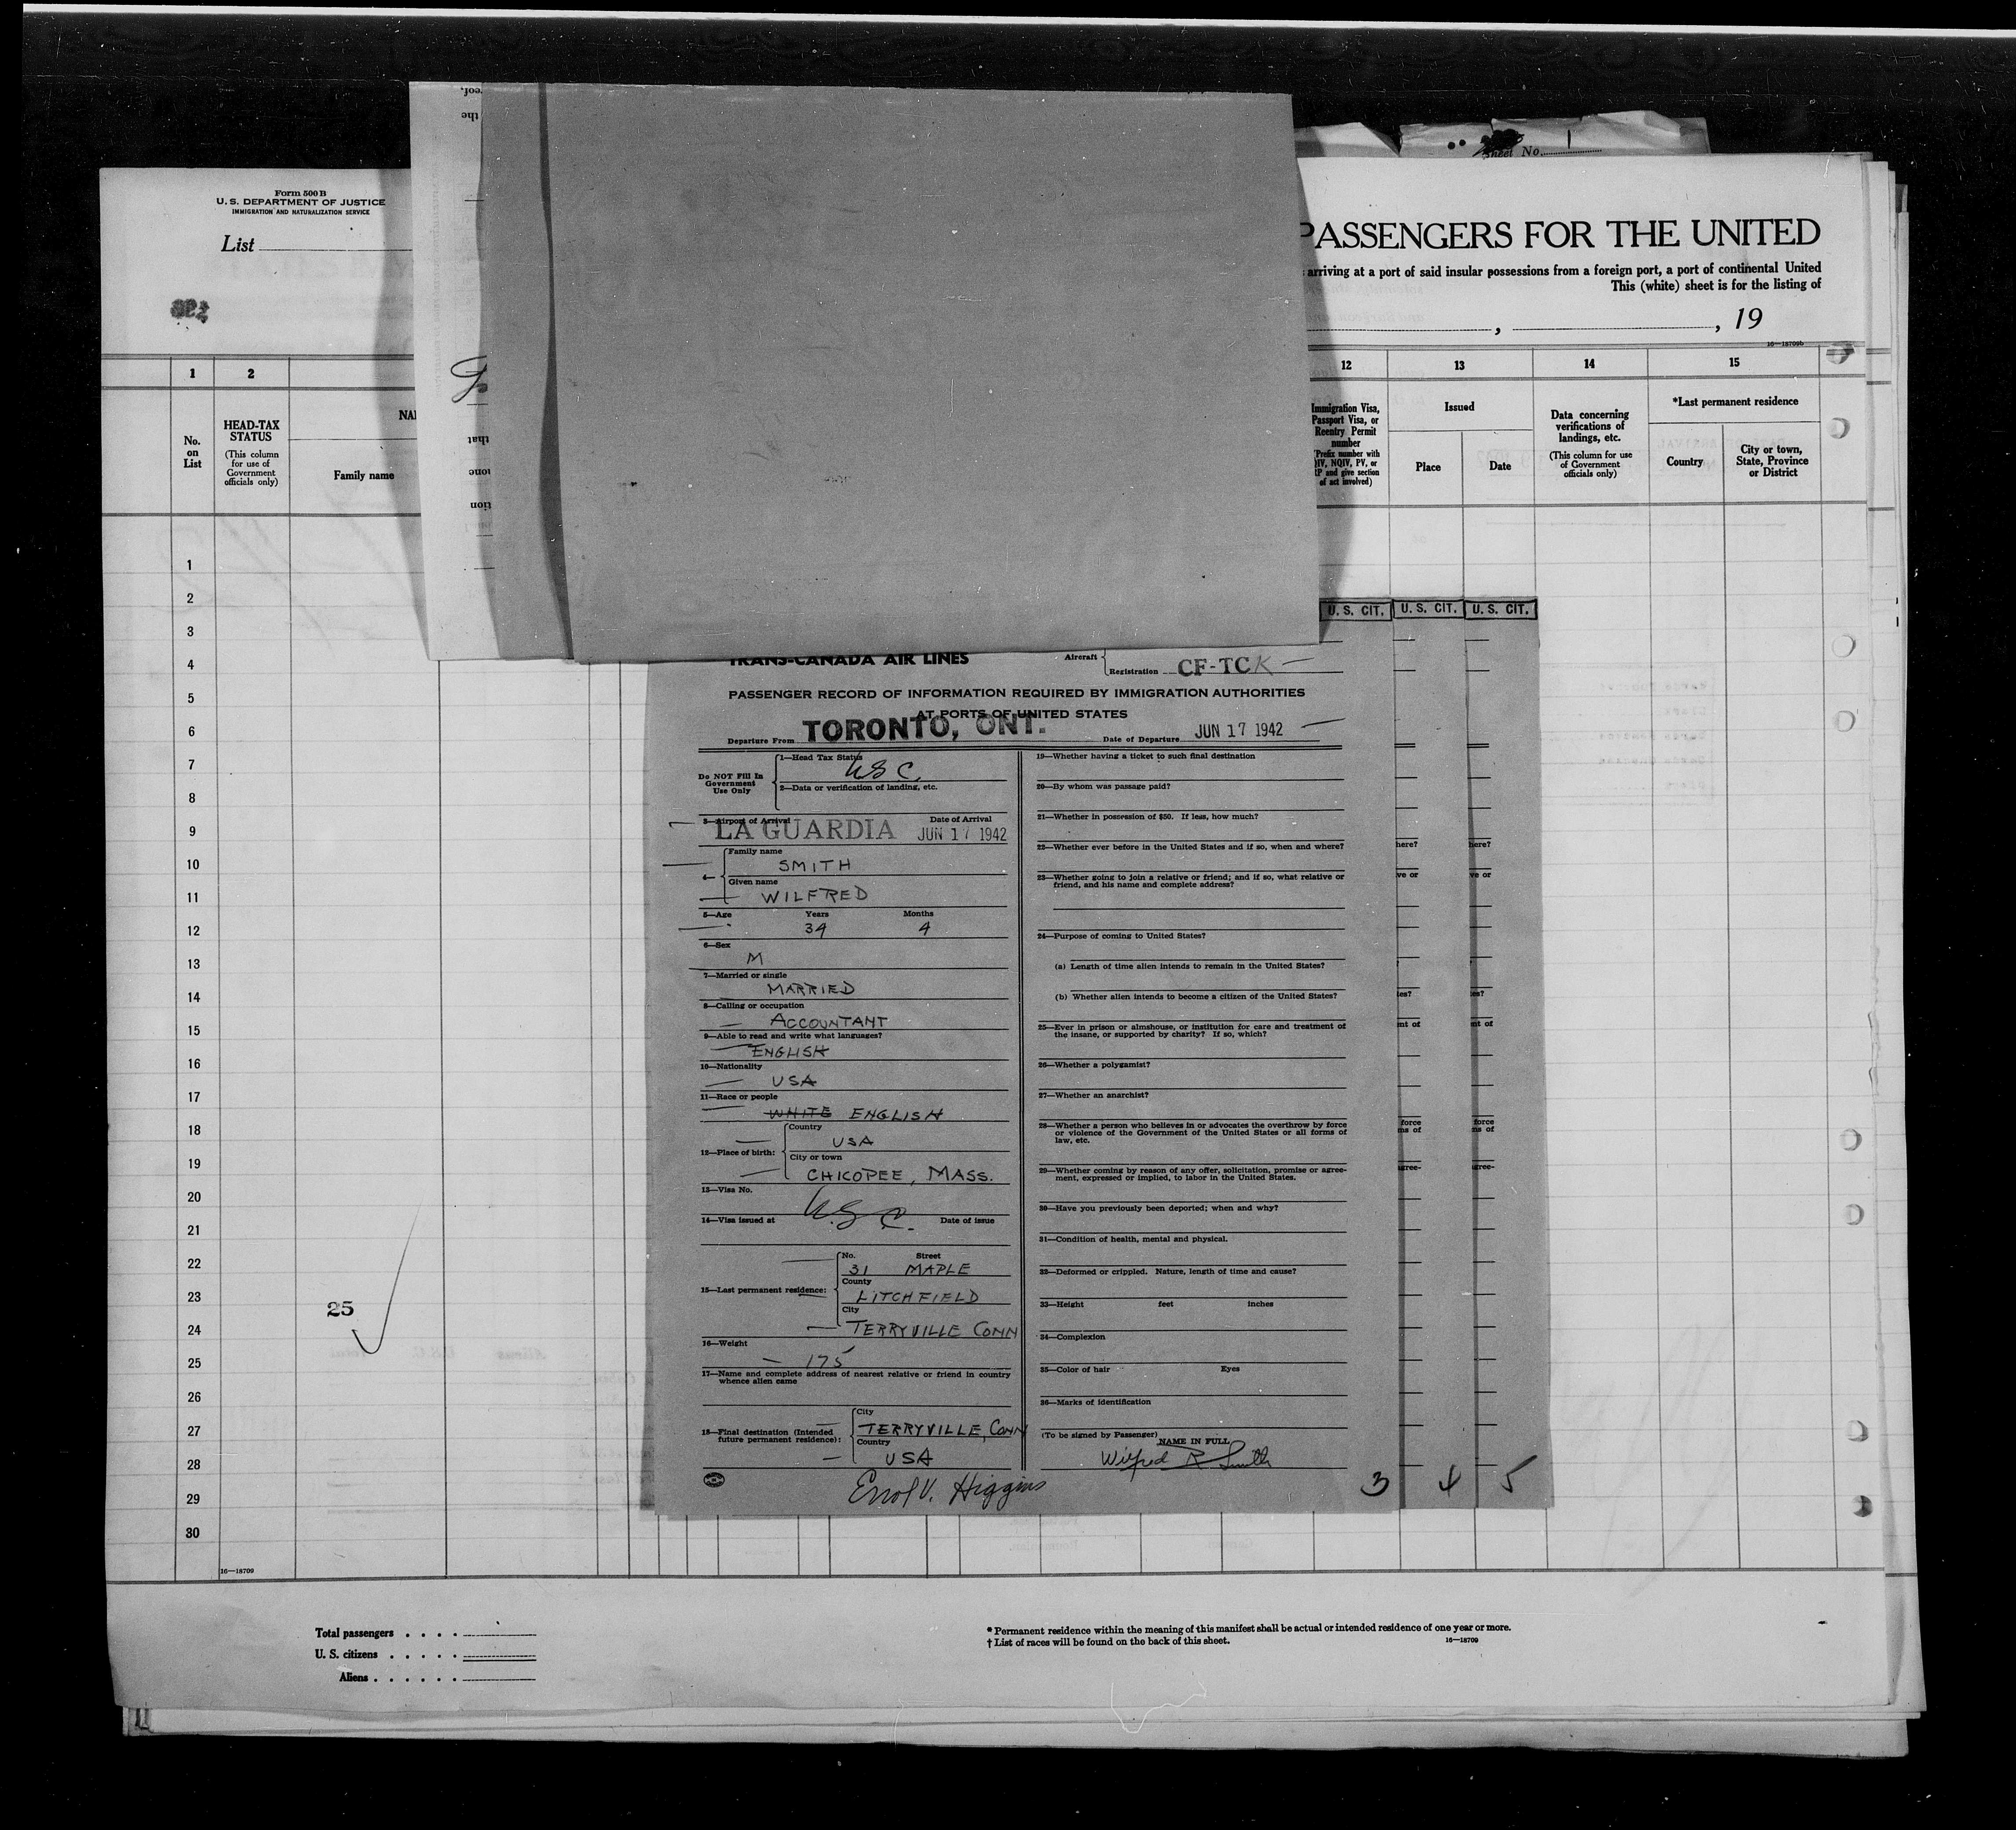 Sheet No. 1
Form 500 B
U. S. DEPARTMENT OF JUSTICE
IMMIGRATION AND NATURALIZATION SERVICE
List
PASSENGERS FOR THE UNITED
arriving at a port of said insular possessions from a foreign port, a port of continental United
This (white) sheet is for the listing of
, , 19
16—18709b
1 2 12 13 14 15
No. on List
HEAD-TAX STATUS
(This column for use of Government officials only)
Family name
Immigration Visa, Passport Visa, or Reentry Permit number
Issued
Place
Date
Data concerning verifications of landings, etc.
(This column for use of Government officials only)
*Last permanent residence
Country
City or town, State, Province or District
the
that
tion
U. S. CIT. U. S. CIT. U. S. CIT.
TRANS-CANADA AIR LINES
Aircraft
Registration CF-TCK
PASSENGER RECORD OF INFORMATION REQUIRED BY IMMIGRATION AUTHORITIES
AT PORTS OF UNITED STATES
Departure From TORONTO, ONT. Date of Departure JUN 17 1942
Do NOT Fill In Government Use Only
1—Head Tax Status
USC
2—Data or verification of landing, etc.
3—Airport of Arrival Date of Arrival
LA GUARDIA JUN 17 1942
4— Family name
SMITH
Given name
WILFRED
5—Age Years Months
34 4
6—Sex
M
7—Married or single
MARRIED
8—Calling or occupation
ACCOUNTANT
9—Able to read and write what languages?
ENGLISH
10—Nationality
USA
11—Race or people
WHITE ENGLISH
12—Place of birth:
Country
USA
City or town
CHICOPEE, MASS.
13—Visa No.
U.S.C.
14—Visa issued at Date of issue
15—Last permanent residence:
No. Street
31 MAPLE
County
LITCHFIELD
City
TERRYVILLE CONN
16—Weight
175
17—Name and complete address of nearest relative or friend in country
whence alien came
18—Final destination (Intended
future permanent residence):
City
TERRYVILLE, CONN
Country
USA
Errol V. Higgins
19—Whether having a ticket to such final destination
20—By whom was passage paid?
21—Whether in possession of $50. If less, how much?
22—Whether ever before in the United States and if so, when and where?
23—Whether going to join a relative or friend; and if so, what relative or
friend, and his name and complete address?
24—Purpose of coming to United States?
(a) Length of time alien intends to remain in the United States?
(b) Whether alien intends to become a citizen of the United States?
25—Ever in prison or almshouse, or institution for care and treatment of
the insane, or supported by charity? If so, which?
26—Whether a polygamist?
27—Whether an anarchist?
28—Whether a person who believes in or advocates the overthrow by force
or violence of the Government of the United States or all forms of
law, etc.
29—Whether coming by reason of any offer, solicitation, promise or agree-
ment, expressed or implied, to labor in the United States.
30—Have you previously been deported; when and why?
31—Condition of health, mental and physical.
32—Deformed or crippled. Nature, length of time and cause?
33—Height feet inches
34—Complexion
35—Color of hair Eyes
36—Marks of identification
(To be signed by Passenger)
NAME IN FULL
Wilfred R Smith
3 4 5
here? here?
ve or ve or
tes? tes?
nt of nt of
force force
ms of ms of
agree- agree-
1
2
3
4
5
6
7
8
9
10
11
12
13
14
15
16
17
18
19
20
21
22
23
24
25
26
27
28
29
30
25
16—18709
Total passengers
U. S. citizens
Aliens
* Permanent residence within the meaning of this manifest shall be actual or intended residence of one year or more.
† List of races will be found on the back of this sheet.
16—18709